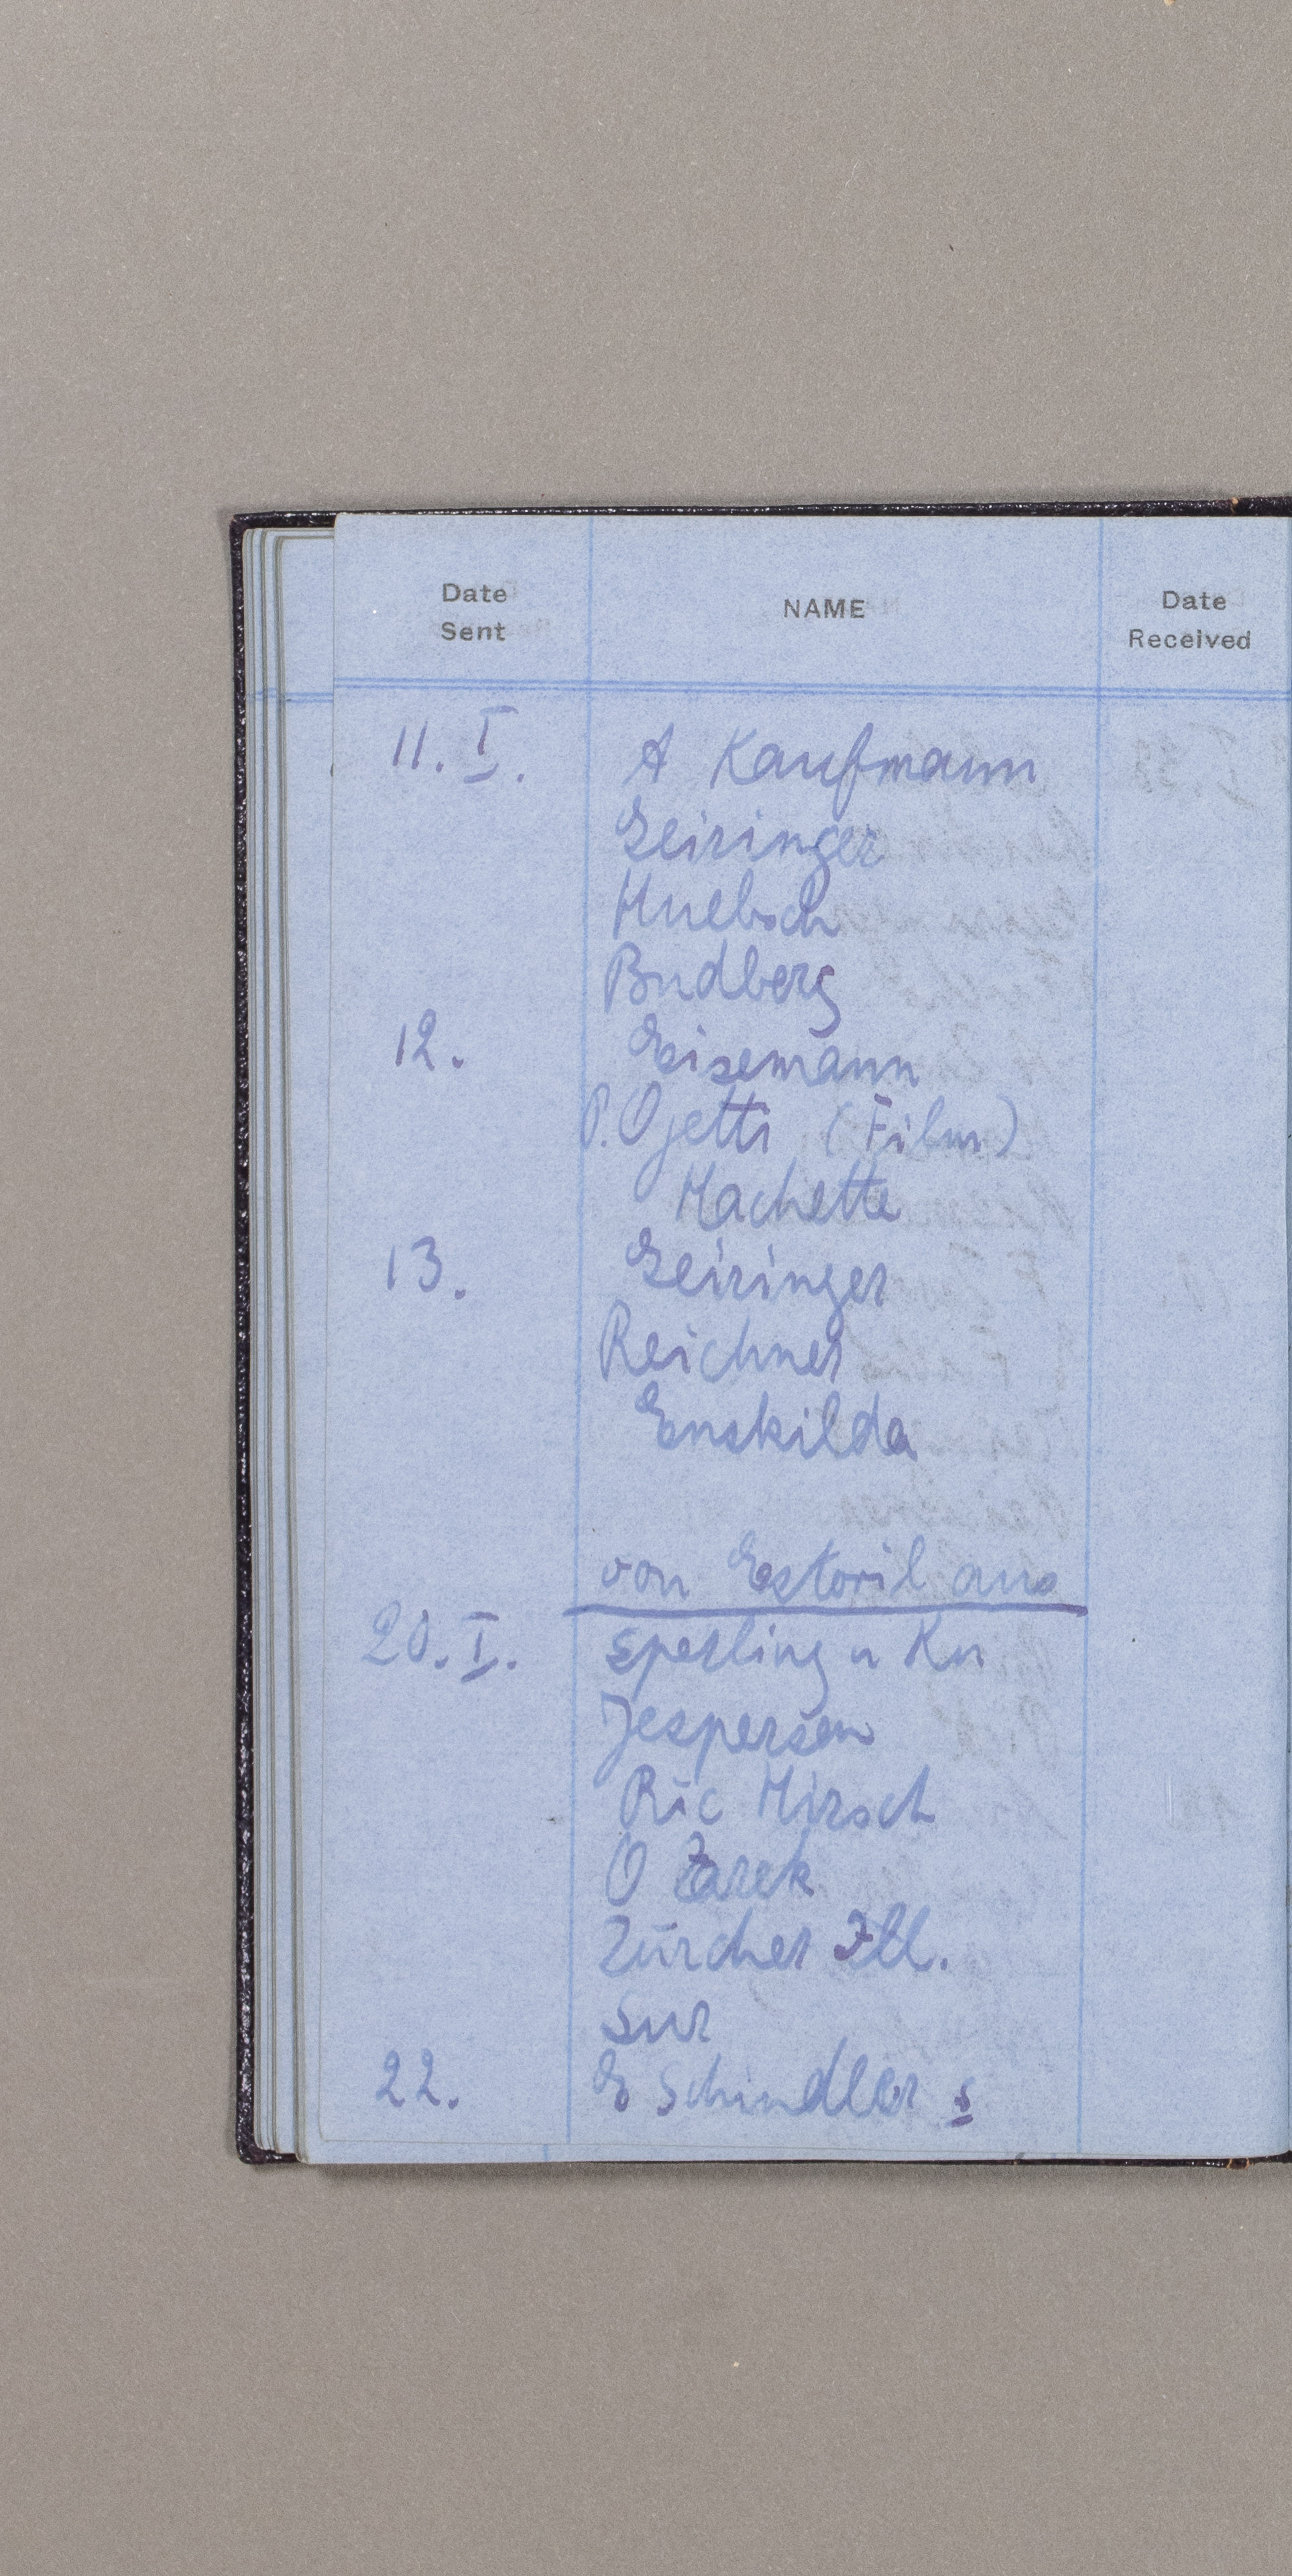 Date Sent NAME Date Received
11. I. A Kaufmann
Geiringer
Huebsch
Budberg
12. Eisemann
P. Ojetti (Film)
Hachette
13. Geiringer
Reichner
Enskilda
von Estoril aus
20. I. Sperling u Kn
Jespersen
Ric Hirsch
O Zarek
Zürcher Ill.
Sur
22. E Schindler s